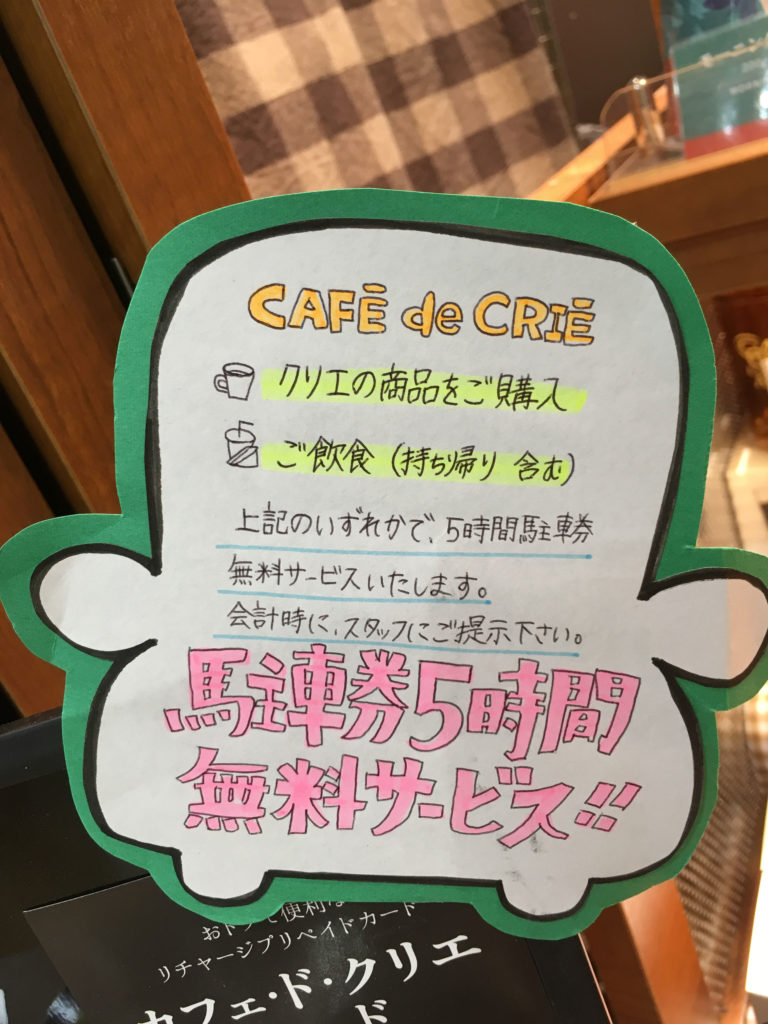 CAFÉ de CRIÉ
クリエの商品をご購入
ご飲食（持ち帰り 含む）
上記のいずれかで、5時間駐車券
無料サービスいたします。
会計時に、スタッフにご提示下さい。
駐車券5時間
無料サービス!!
リチャージプリペイドカード
カフェ・ド・クリエ
ド